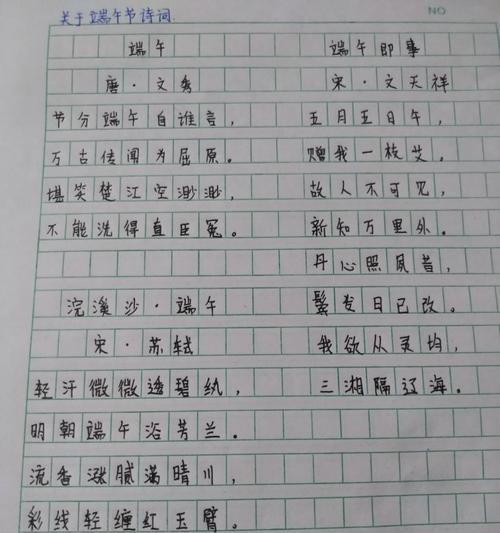 关于端午节诗词
NO
端午
唐·文秀
节分端午自谁言，
万古传闻为屈原。
堪笑楚江空渺渺，
不能洗得直臣冤。
浣溪沙·端午
宋·苏轼
轻汗微微透碧纨，
明朝端午浴芳兰。
流香涨腻满晴川，
彩线轻缠红玉臂。
端午即事
宋·文天祥
五月五日午，
赠我一枝艾。
故人不可见，
新知万里外。
丹心照夙昔，
鬓发日已改。
我欲从灵均，
三湘隔辽海。